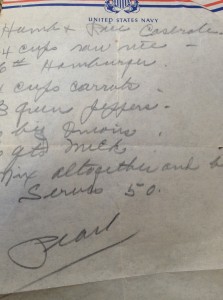 UNITED STATES NAVY
Hamb & Rice Caserole
4 cups raw rice -
6 # Hamburger.
cups carrots.
3 green peppers.
big onions
qts milk
Mix altogether and
Serves 50.
Pearl